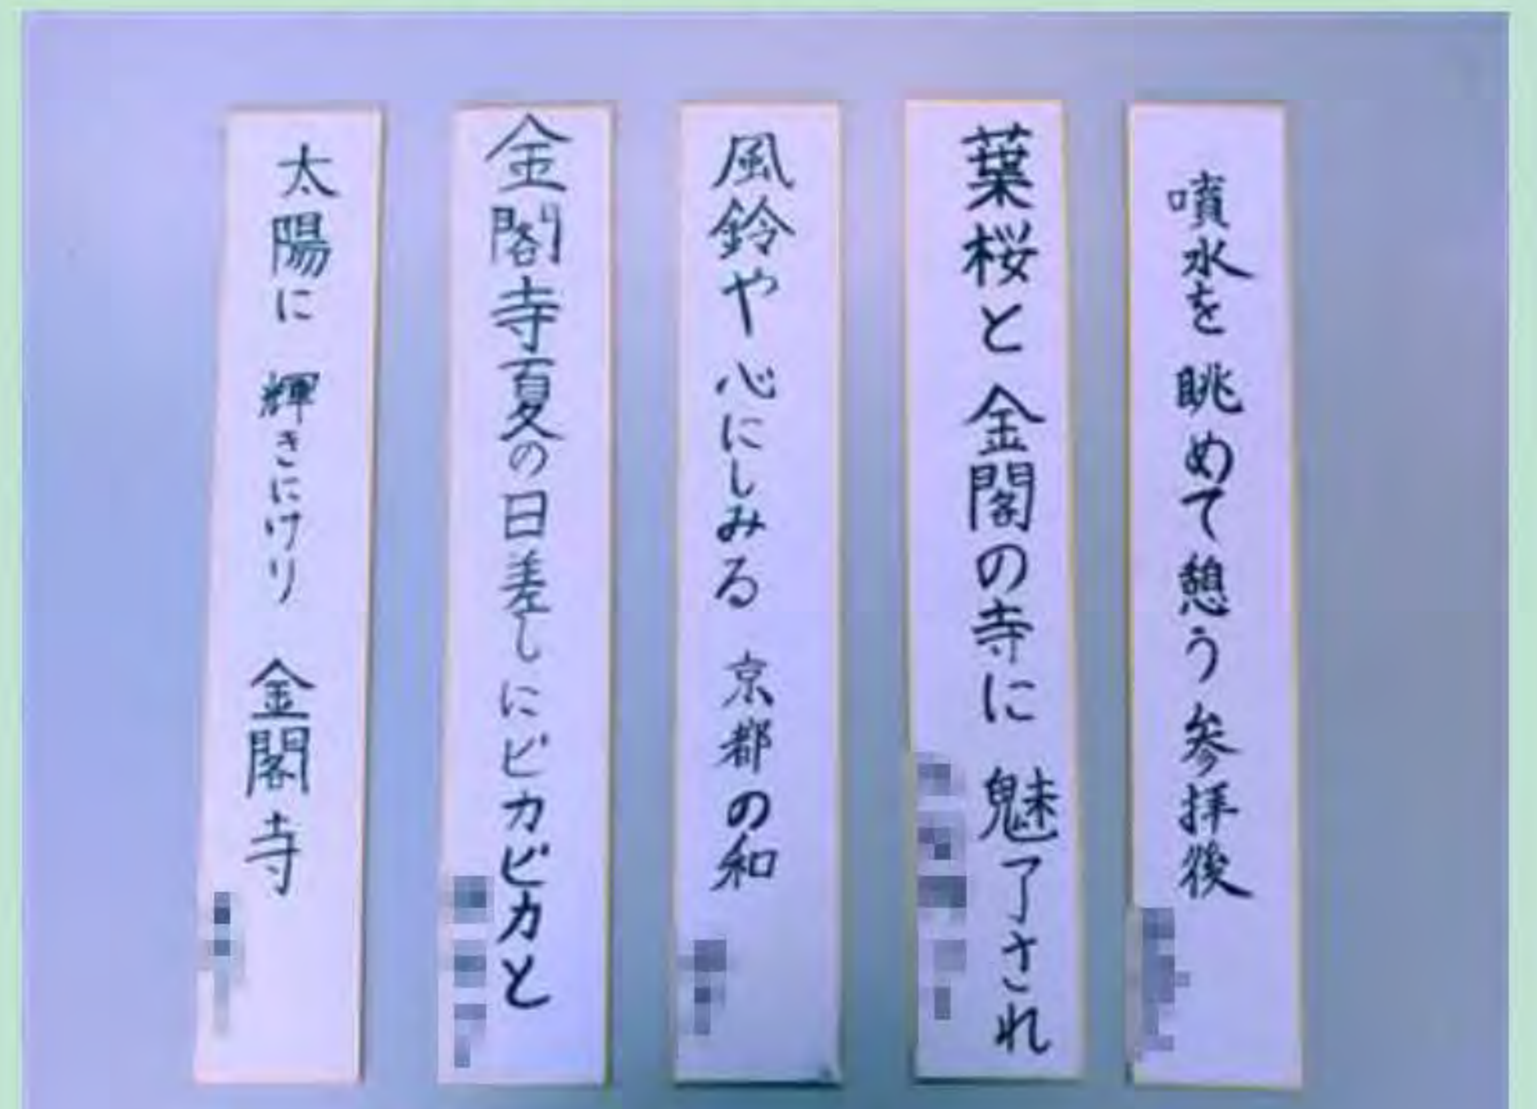 噴水を 眺めて憩う 参拝後
葉桜と 金閣の寺に 魅了され
風鈴や 心にしみる 京都の和
金閣寺夏の日差しにピカピカと
太陽に 輝きにけり 金閣寺